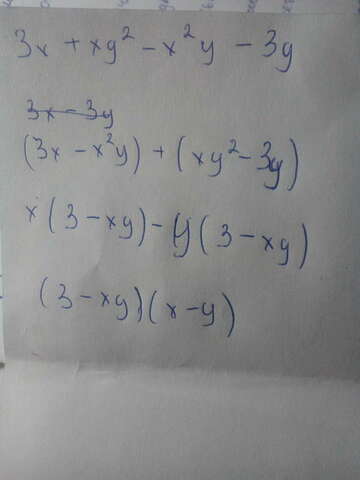 3x + xy² - x²y - 3y
3x - 3y
(3x - x²y) + (xy² - 3y)
x(3 - xy) - y(3 - xy)
(3 - xy)(x - y)